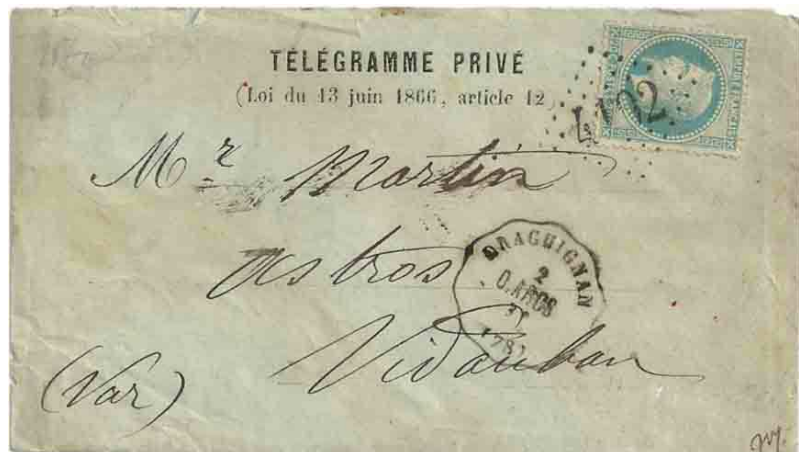 TÉLÉGRAMME PRIVÉ
(Loi du 13 juin 1866, article 12)
4192
Mr Martin
Astros
DRAGUIGNAN
2
O.ARCS
Vidauban
(Var)